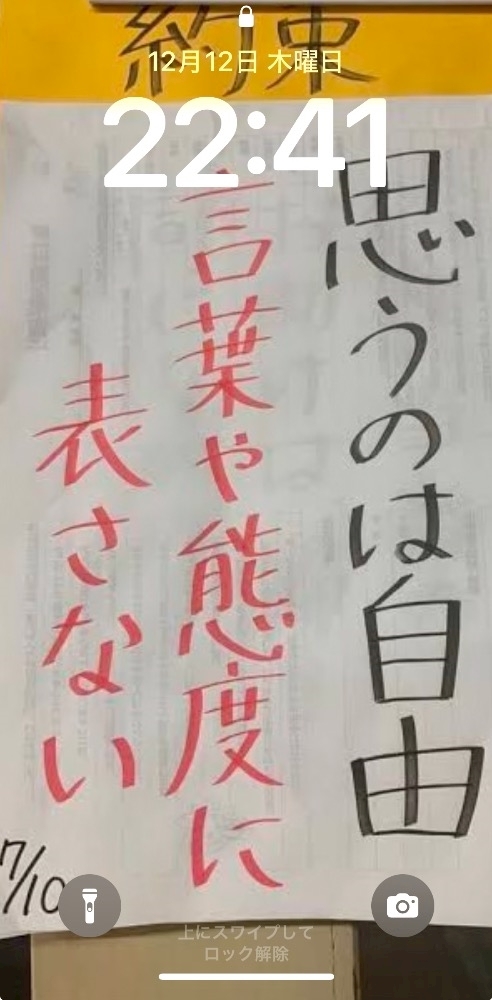 約束
12月12日 木曜日
22:41
思うのは自由
言葉や態度に
表さない
7/10
上にスワイプして
ロック解除